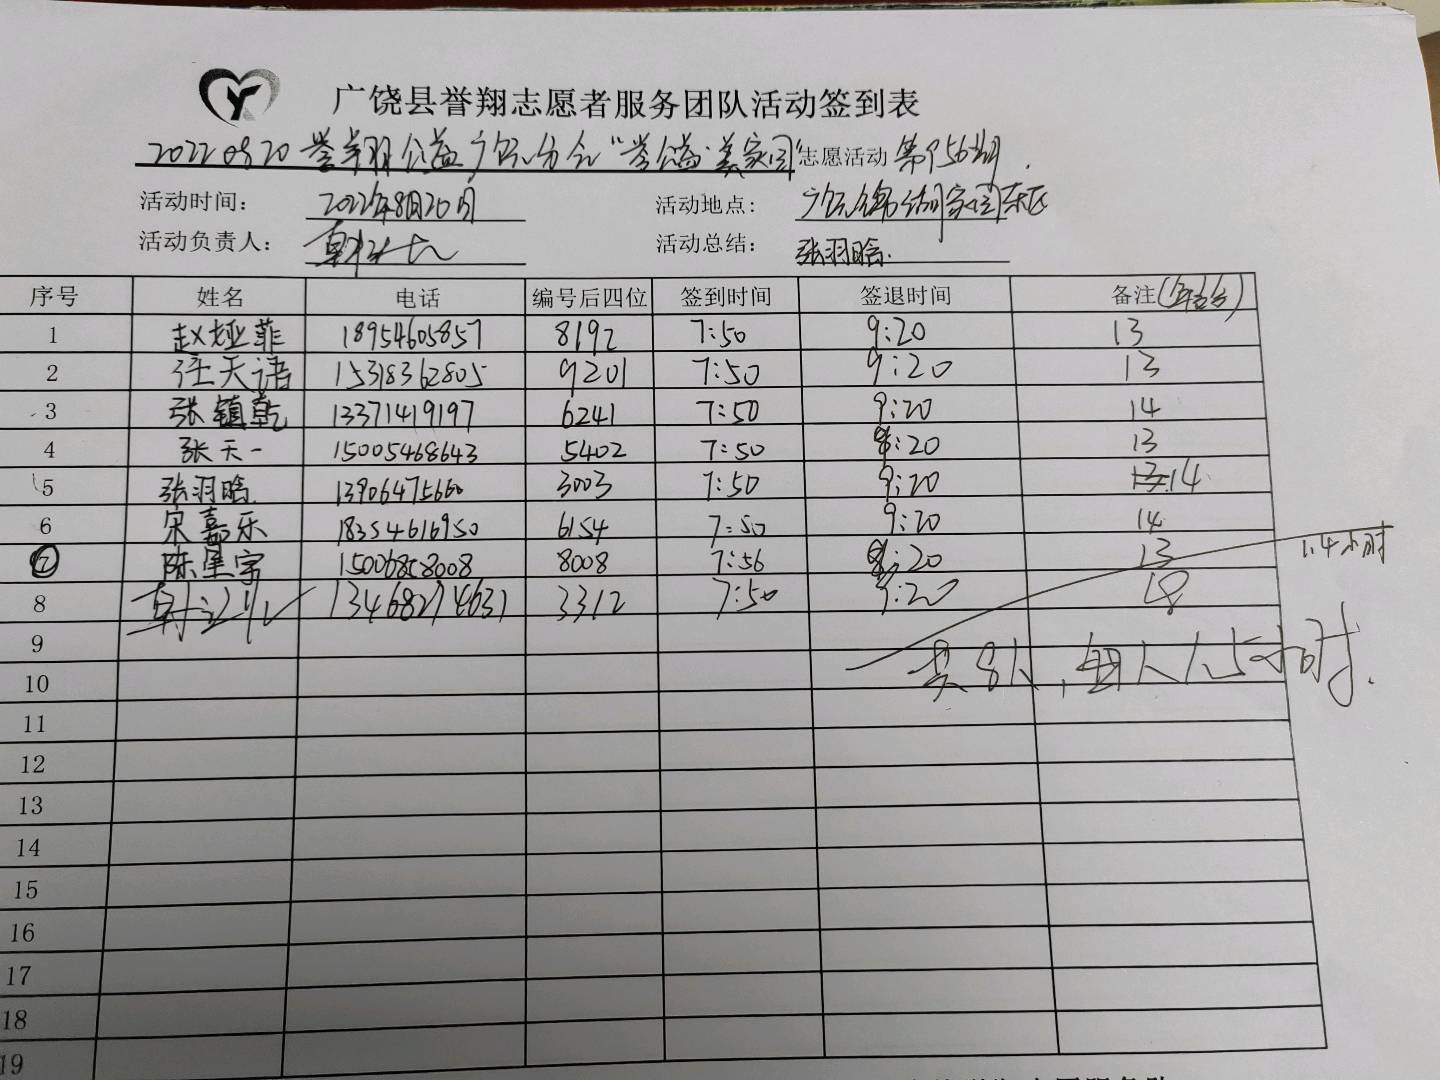 广饶县誉翔志愿者服务团队活动签到表
誉翔公益广饶分会“誉公益·美家园”志愿活动 第 56期.
活动时间： 2022年8月20日 活动地点： 家园东区
活动负责人： 活动总结： 张羽晗.
序号 姓名 电话 编号后四位 签到时间 签退时间 备注(年龄)
1 赵娅菲 18954605857 8192 7:50 9:20 13
2 任天语 15318362805 9201 7:50 9:20 13
3 张镇乾 13371419197 6241 7:50 9:20 14
4 张天一 15005468643 5402 7:50 9:20 13
5 张羽晗 13906475660 3003 7:50 9:20 13 14
6 宋嘉乐 18354616950 6154 7:50 9:20 14
7 陈星宇 15006858008 8008 7:56 9:20 13 1.4小时
8 13468274631 3312 7:50 9:20
9
共8人,每人1.5小时.
10
11
12
13
14
15
16
17
18
19